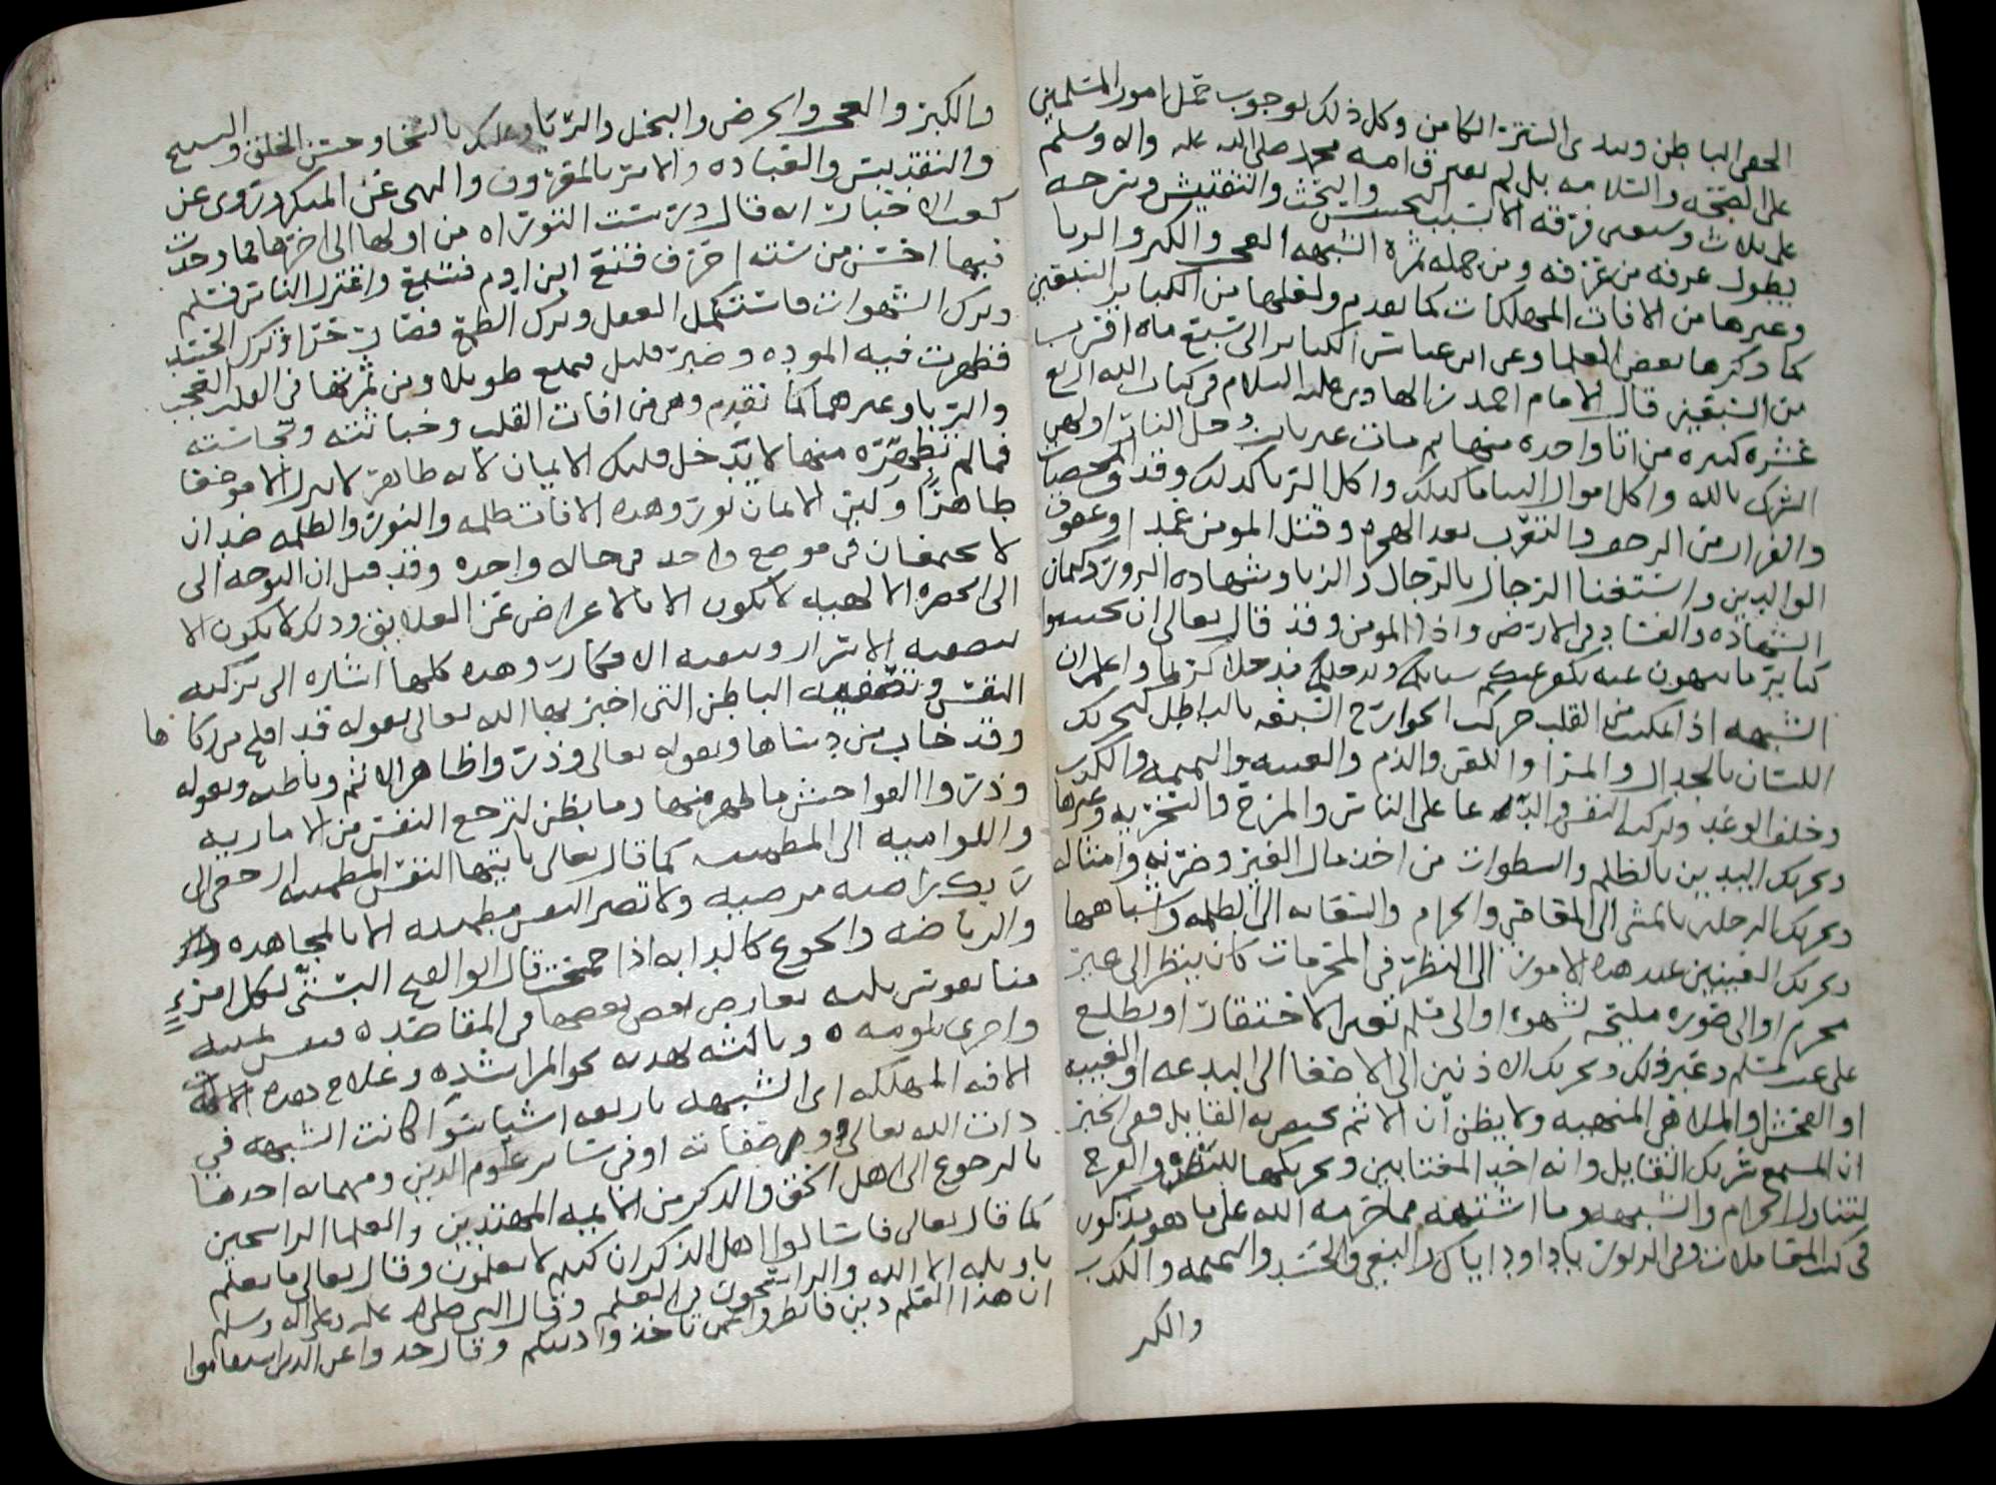 الحفى الباطن وىىدى السترة الكامن وكل ذلك لوجوب حمل امور المسلمين
على الصحة والسلامه بل لم يعترق امه محمد صلى الله عليه واله وسلم
على ثلاث وسبعين فرقه الا بسبب التحسس والبحث والتفتيش وشرحه
يطول عرفه من عرفه ومن جمله ثمرة الشبهه العجب والكبر والريا
وغيرها من الافات المهلكات كما تقدم ولعلها من الكباير السبعين
كما ذكرها بعض العلما وعن ابن عباس الكباير الى سبع مايه اقرب
من السبعين قال الامام احمد بن الهادي عليه السلام في كتاب الله اربع
عشره كبيره من اتا واحده منها ثم مات غير تايب دخل النار اولهن
الشرك بالله واكل اموال اليتاما كذلك واكل الربا كذلك وقذف المحصنات
والفرار من الزحف والتعرب بعد الهجره وقتل المومن عمدا وعقوق
الوالدين واستغنا الرجال بالرجال والزنا وشهاده الزور وكتمان
الشهاده والفساد في الارض واذا المومن وقد قال تعالى ان تجتنبوا
كباير ما تنهون عنه نكفر عنكم سياتكم وندخلكم مدخلا كريما واعلم ان
الشبهه اذا تمكنت من القلب حركت الجوارح السبعه بالباطل كتحريك
اللسان بالجدال والمرا واللعن والذم والغيبه والنميمه والكذب
وخلف الوعد وتزكيه النفس والدعا على الناس والمزح والسخريه وغيرها
وتحريك اليدين بالظلم والسطوات من اخذ مال الغير وضربه وامثاله
وتحريك الرجلين بالمشى الى المعاصي والحرام والسعايه الى الظلمه واشباهها
وتحريك العينين عند هذه الامور الى النظر في المحرمات كان ينظر الى غير
محرم او الى صوره مليحه لشهوه او الى مسلم بعين الاحتقار او يطلع
على عيب مسلم وغير ذلك وتحريك الاذنين الى الاصغا الى البدعه او الغيبه
او الفحش او الملاهي المنهيه ولا يظن ان الاثم يختص به القايل ففي الخبر
ان المستمع شريك القايل وانه احد المغتابين وتحريكها للبطن والفرج
لتناول الحرام والشبهه وما اشتهته مما حرمه الله على ما هو مذكور
في كتب المعاملات وفي الزبور يا داود اياك والبغي والحسد والنميمه والكذب
والكبر
والكبر والعجب والحرص والبخل والريا وعليك بالسخا وحسن الخلق والتسبيح
والتقديس والعباده والامر بالمعروف والنهى عن المنكر وروى عن
كعب الاحبار انه قال درست التوراه من اولها الى اخرها فما وجدت
فيها احسن من سته احرف قنع ابن ادم فشبع واعتزل الناس فسلم
وترك الشهوات فاستكمل العقل وترك الطمع فصار حرا وترك الحسد
فظهرت فيه الموده وصبر قليل فتمتع طويلا ومن ثمرتها في القلب العجب
والريا وغيرهما كما تقدم وهي من افات القلب وخباثته ونجاسته
فما لم تطهره منها لا يدخل قلبك الايمان لانه طاهر لا ينزل الا موضعا
طاهرا ولين الايمان نور وهذه الافات ظلمه والنور والظلمه ضدان
لا يجتمعان في موضع واحد في حاله واحده وقد قيل ان التوجه الى
الى الحضره الالهيه لا يكون الا بالاعراض عن العلايق وذلك لا يكون الا
بتصفيه الاسرار وتنقيه الافكار وهذه كلها اشاره الى تزكيه
النفس وتصفيه الباطن التى اخبر بها الله تعالى بقوله قد افلح من زكاها
وقد خاب من دساها وبقوله تعالى وذروا ظاهر الاثم وباطنه وبقوله
وذروا الفواحش ما ظهر منها وما بطن لترجع النفس من الاماريه
واللواميه الى المطمينه كما قال تعالى يا ايتها النفس المطمينه ارجعي الى
ربك راضيه مرضيه ولا تصير النفس مطمينه الا بالمجاهده
والرياضه والجوع كالدابه اذا جمحت قال ابو الفتح البستى لكل امرء
منا نفوس ثلثه تعارض بعض بعضها في المقاصده فنفس تمنيه
واخرى تلومه ٥ وثالثه تهديه نحو المراشده وعلاج هذه الافه
الافه المهلكه اى الشبهه باربعه اشيا سوا كانت الشبهه في
ذات الله تعالى وفي صفاته او في ساير علوم الدين ومهماته احدها
بالرجوع الى اهل الحق والذكر من الايمه المهتدين والعلما الراسخين
كما قال تعالى فاسالوا اهل الذكر ان كنتم لا تعلمون وقال تعالى ما يعلم
تاويله الا الله والراسخون في العلم وقال النبي صلى الله عليه وعلى اله وسلم
ان هذا العلم دين فانظروا عمن تاخذوا دينكم وقال خذوا عن الذين استقاموا